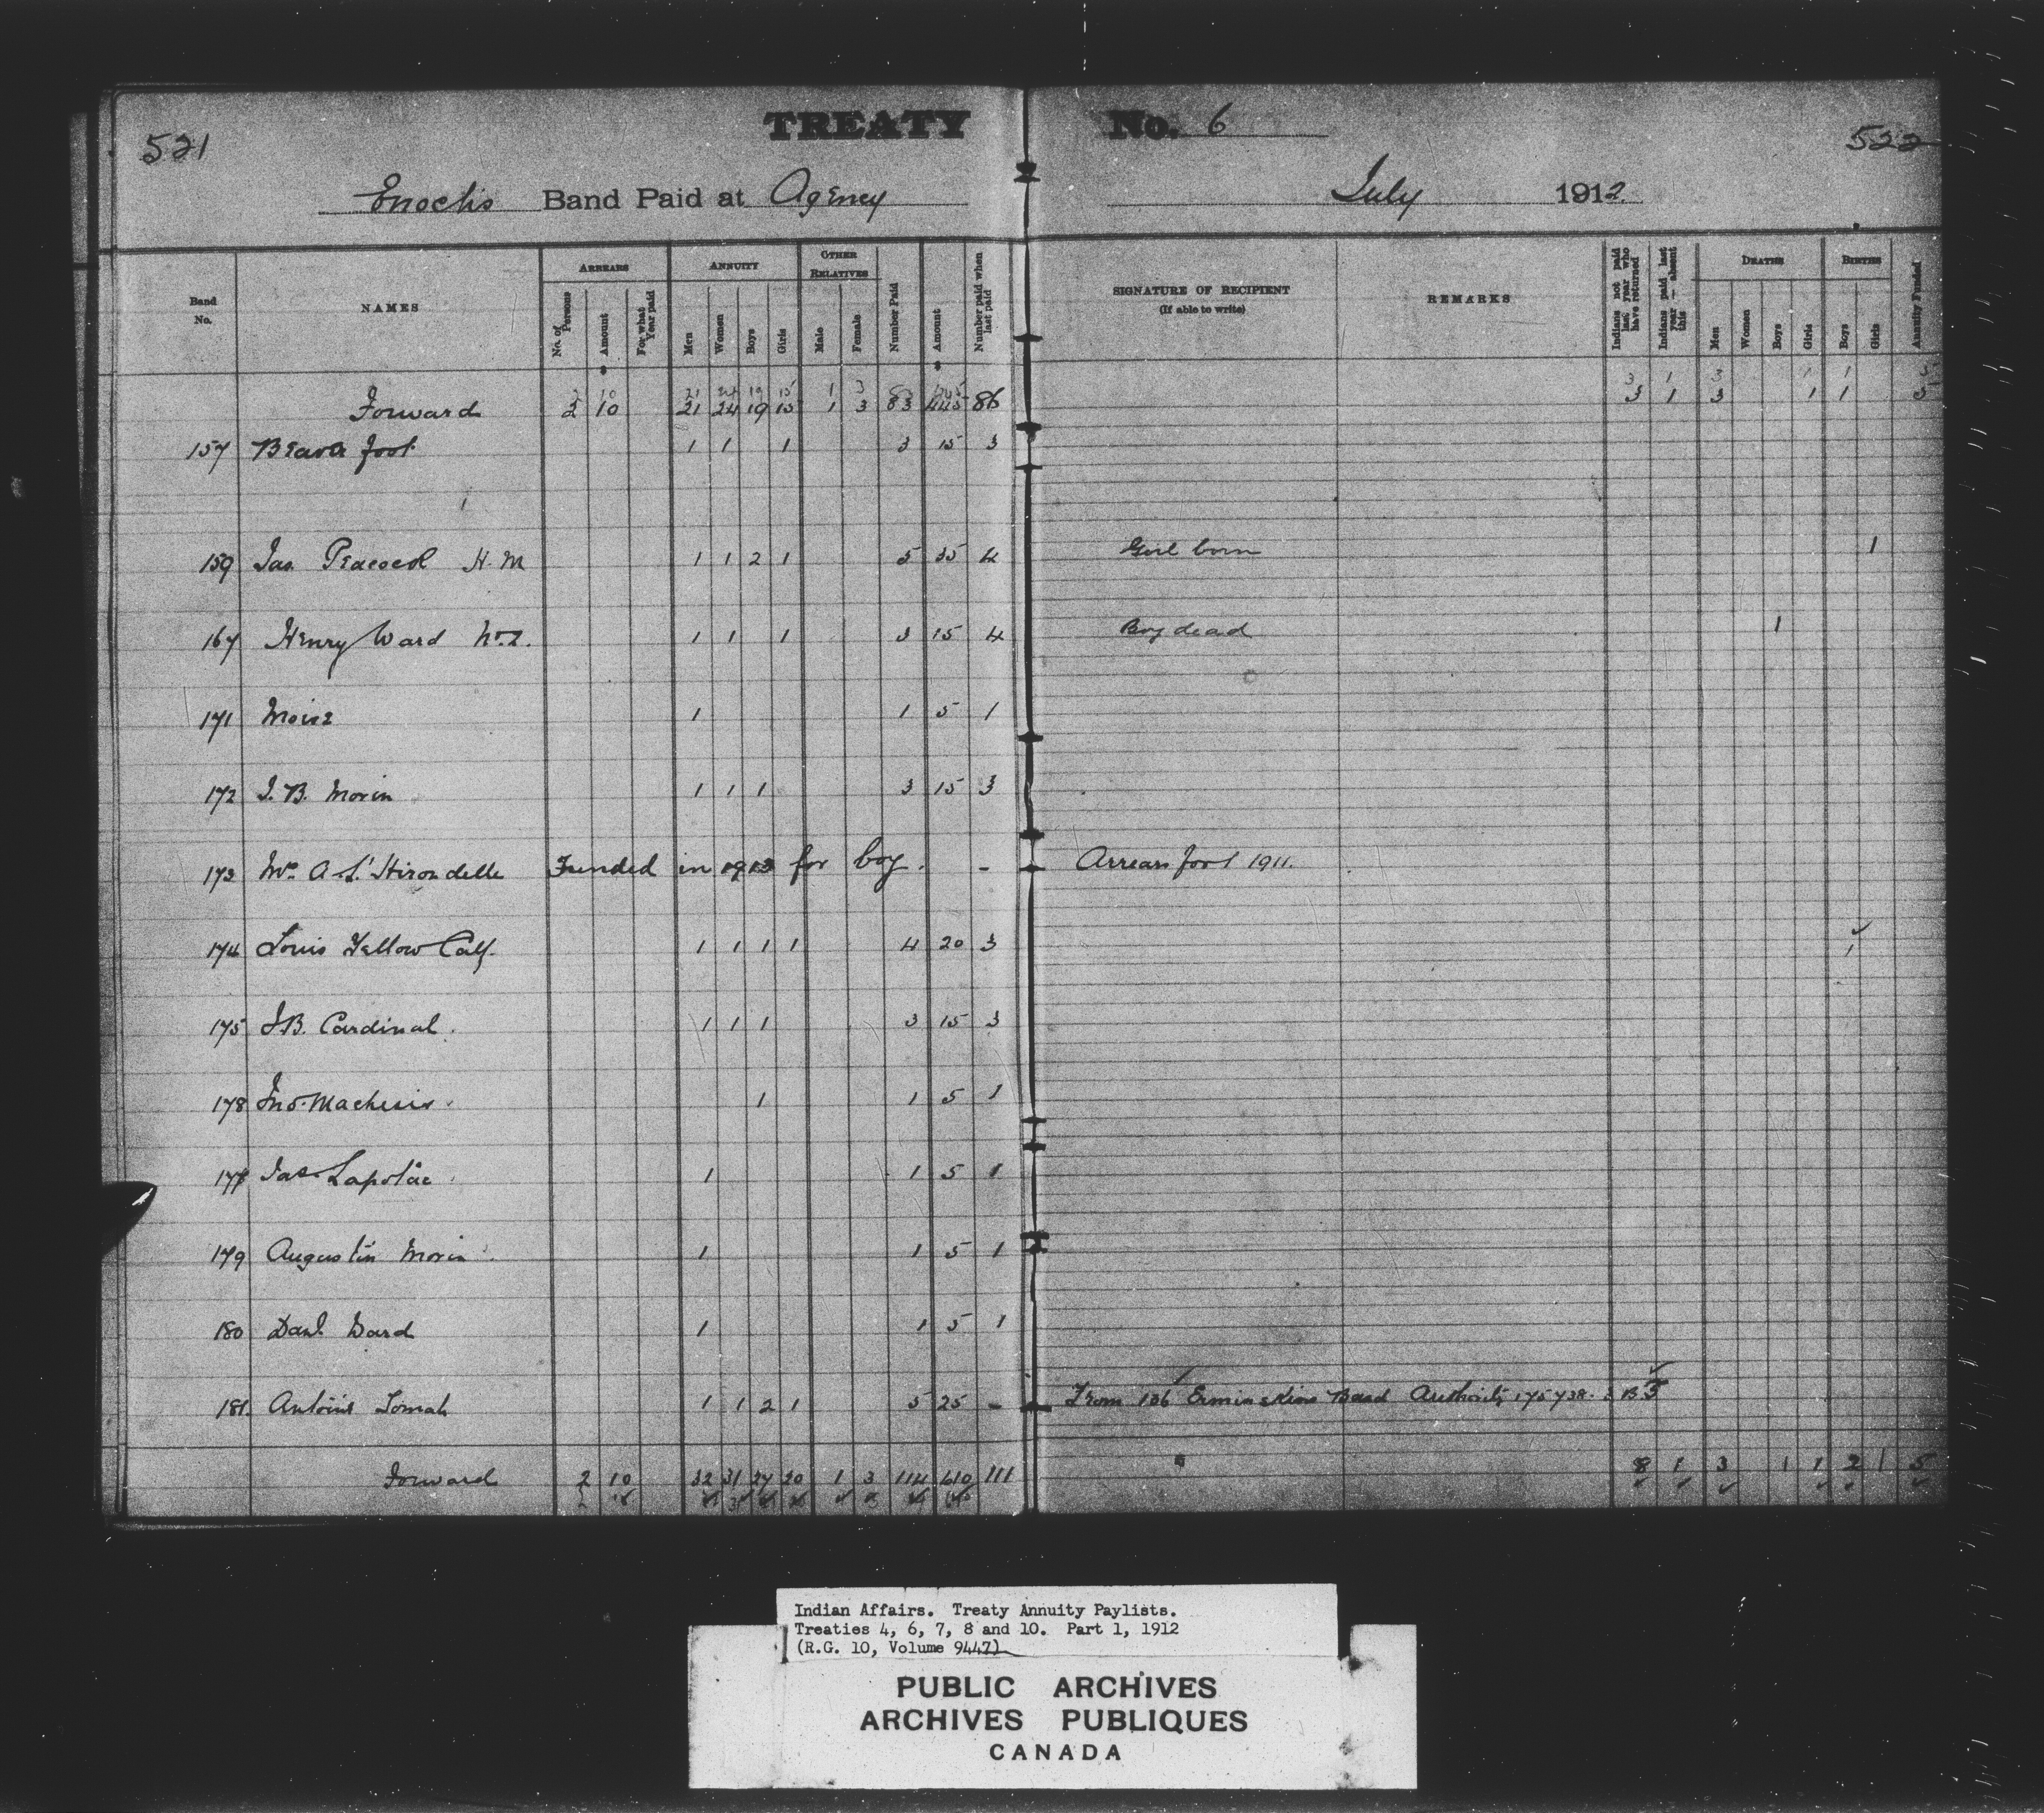 521 TREATY No. 6 522
Enochs Band Paid at Agency July 1912.
Band No. NAMES ARREARS ANNUITY OTHER RELATIVES Number Paid Amount Number paid when last paid SIGNATURE OF RECIPIENT (If able to write) REMARKS Indians not paid last year who have returned Indians paid last year — absent this DEATHS BIRTHS Annuity Funded
No. of Persons Amount For what Year paid Men Women Boys Girls Male Female Men Women Boys Girls Boys Girls
Forward 2 10 21 24 19 15 1 3 83 445 86 3 1 3 1 1
157 Beaver foot 1 1 1 3 15 3
159 Jas. Peacock H. M 1 1 2 1 5 35 4 Girl born 1
167 Henry Ward 1 1 1 3 15 4 Boy dead 1
171 Moise 1 1 5 1
172 J. B. Morin 1 1 1 3 15 3
173 Mrs A. L'Hirondelle Funded in for boy. - Arrears for 1911.
174 Louis Yellow Calf. 1 1 1 1 4 20 3 1
175 J.B. Cardinal. 1 1 1 3 15 3
178 Jno. 1 1 5 1
Jas Lapotac 1 1 5 1
179 Augustin Morin 1 1 5 1
180 Danl. Ward 1 1 5 1
181. Antoine Tomah 1 1 2 1 5 25 - From 136 Ermineskins Band Authority 175738.
Forward 2 10 32 31 27 20 1 3 114 610 111 8 1 3 1 1 2 1 5
Indian Affairs. Treaty Annuity Paylists.
Treaties 4, 6, 7, 8 and 10. Part 1, 1912
(R.G. 10, Volume 9447)
PUBLIC ARCHIVES
ARCHIVES PUBLIQUES
CANADA